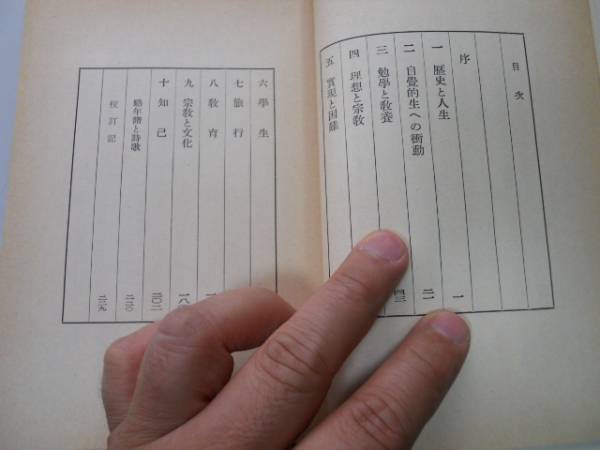 目次
序
一 歴史と人生 一
二 自覺的生への衝動 二一
三 勉學と教養 四三
四 理想と宗教
五 實現と困難
六 學生
七 旅行
八 教育
九 宗教と文化 一八
十 知己 二〇二
略年譜と詩歌 二二〇
校訂記 二三九